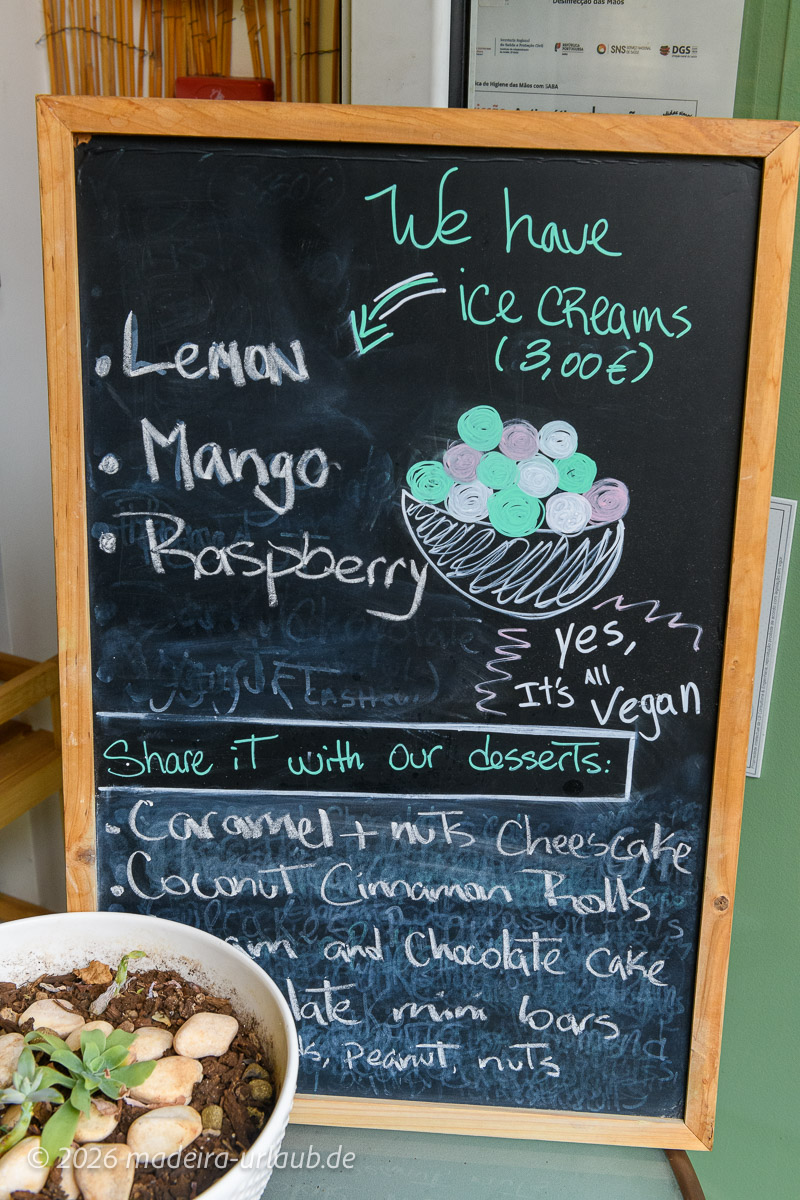 Desinfeção das Mãos
SNS DGS
We have
ice creams
(3,00€)
• Lemon
• Mango
• Raspberry
yes,
It's All Vegan
Share it with our desserts:
• Caramel + nuts Cheescake
• Coconut Cinnamon Rolls
and Chocolate cake
mini bars
Peanut, nuts
© 2026 madeira-urlaub.de